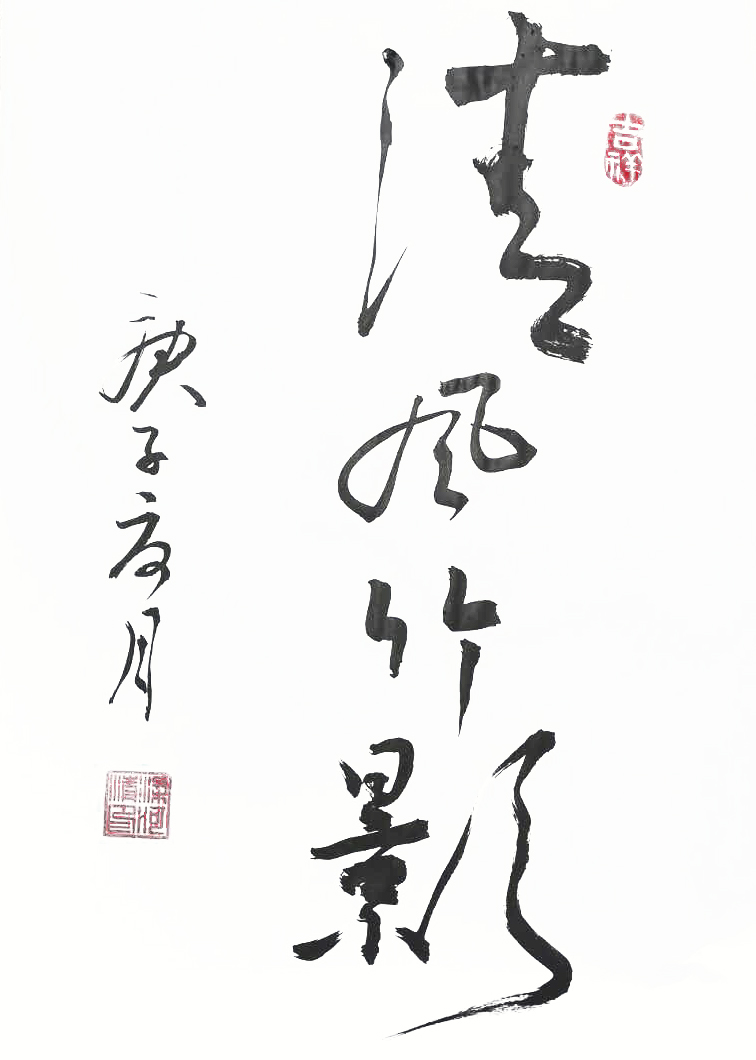 吉祥
清風竹影
庚子夏月